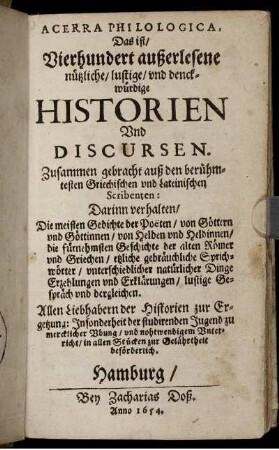 ACERRA PHILOLOGICA,
Das ist/
Vierhundert außerlesene
nützliche/ lustige/ vnd denck-
würdige
HISTORIEN
Vnd
DISCURSEN.
Zusammen gebracht auß den berühm-
testen Griechischen vnd Lateinischen
Scribenten:
Darinn verhalten/
Die meisten Gedichte der Poëten/ von Göttern
vnd Göttinnen/ von Helden vnd Heldinnen/
die fürnehmsten Geschichte der alten Römer
vnd Griechen/ etzliche gebräuchliche Sprich-
wörter/ vnterschiedlicher natürlicher Dinge
Erzehlungen vnd Erklärungen/ lustige Ge-
spräch vnd dergleichen.
Allen Liebhabern der Historien zur Er-
getzung: Insonderheit der studirenden Jugend zu
mercklicher Vbung/ vnd nohtwendigem Vnter-
richt/ in allen Stücken zur Gelährtheit
beförderlich.
Hamburg/
Bey Zacharias Doß.
Anno 1654.